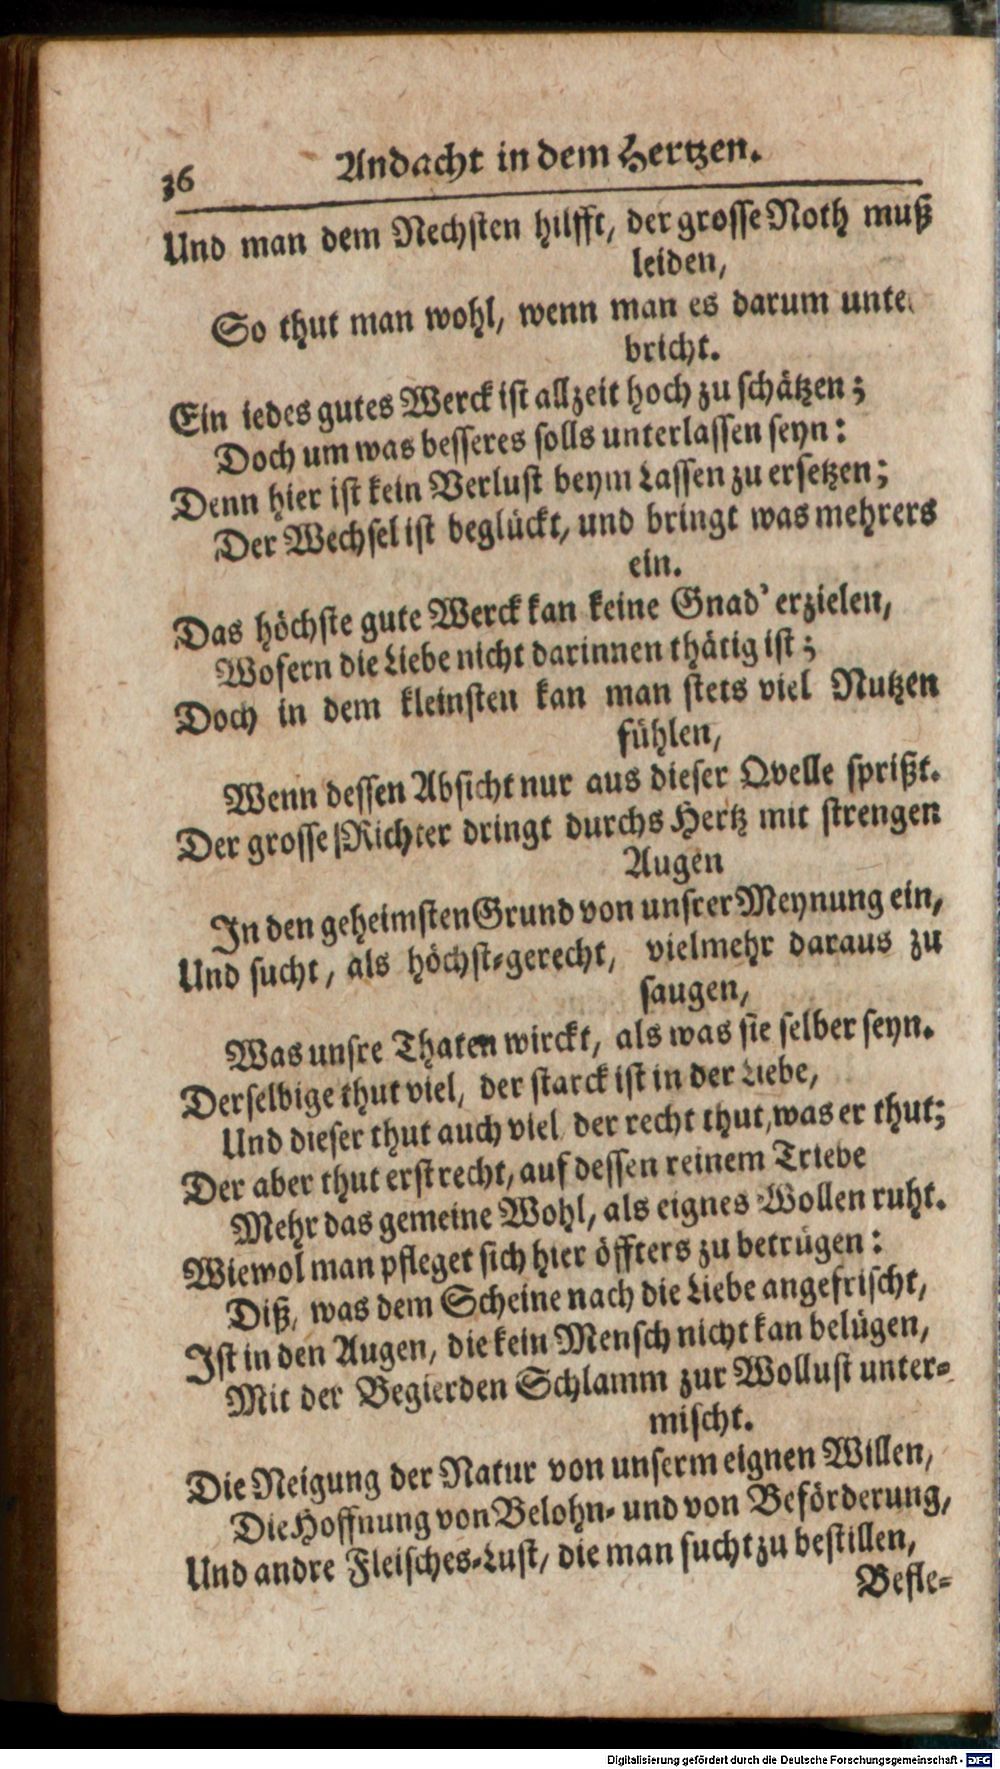 36 Andacht in dem Hertzen.
Und man dem Nechsten hilfft, der grosse Noth muß
leiden,
So thut man wohl, wenn man es darum unte
bricht.
Ein iedes gutes Werck ist allzeit hoch zu schätzen;
Doch um was besseres solls unterlassen seyn:
Denn hier ist kein Verlust beym Lassen zu ersetzen;
Der Wechsel ist beglückt, und bringt was mehrers
ein.
Das höchste gute Werck kan keine Gnad' erzielen,
Wofern die Liebe nicht darinnen thätig ist;
Doch in dem kleinsten kan man stets viel Nutzen
fühlen,
Wenn dessen Absicht nur aus dieser Qvelle sprißt.
Der grosse Richter dringt durchs Hertz mit strengen
Augen
In den geheimsten Grund von unsrer Meynung ein,
Und sucht, als höchst-gerecht, vielmehr daraus zu
saugen,
Was unsre Thaten wirckt, als was sie selber seyn.
Derselbige thut viel, der starck ist in der Liebe,
Und dieser thut auch viel der recht thut, was er thut;
Der aber thut erst recht, auf dessen reinem Triebe
Mehr das gemeine Wohl, als eignes Wollen ruht.
Wiewol man pfleget sich hier öffters zu betrügen:
Diß, was dem Scheine nach die Liebe angefrischt,
Ist in den Augen, die kein Mensch nicht kan belügen,
Mit der Begierden Schlamm zur Wollust unter-
mischt.
Die Neigung der Natur von unserm eignen Willen,
Die Hoffnung von Belohn- und von Beförderung,
Und andre Fleisches-Lust, die man sucht zu bestillen,
Befle-
Digitalisierung gefördert durch die Deutsche Forschungsgemeinschaft - DFG